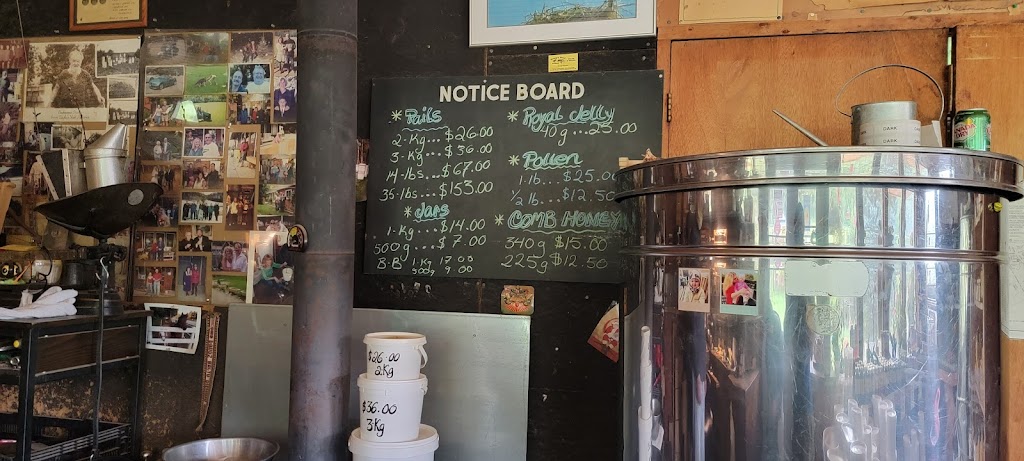 NOTICE BOARD
* Pails
2-Kg... $26.00
3-Kg... $36.00
14-lbs... $67.00
35-lbs... $153.00
* Jars
1-Kg... $14.00
500g.... $ 7.00
B-B 1 Kg 17.00
500g 9.00
* Royal Jelly
10g...25.00
* Pollen
1-lb... $25.00
1/2 lb... $12.50
* COMB HONEY
340g $15.00
225g $12.50
$26.00
2Kg
$36.00
3Kg
DARK
DARK